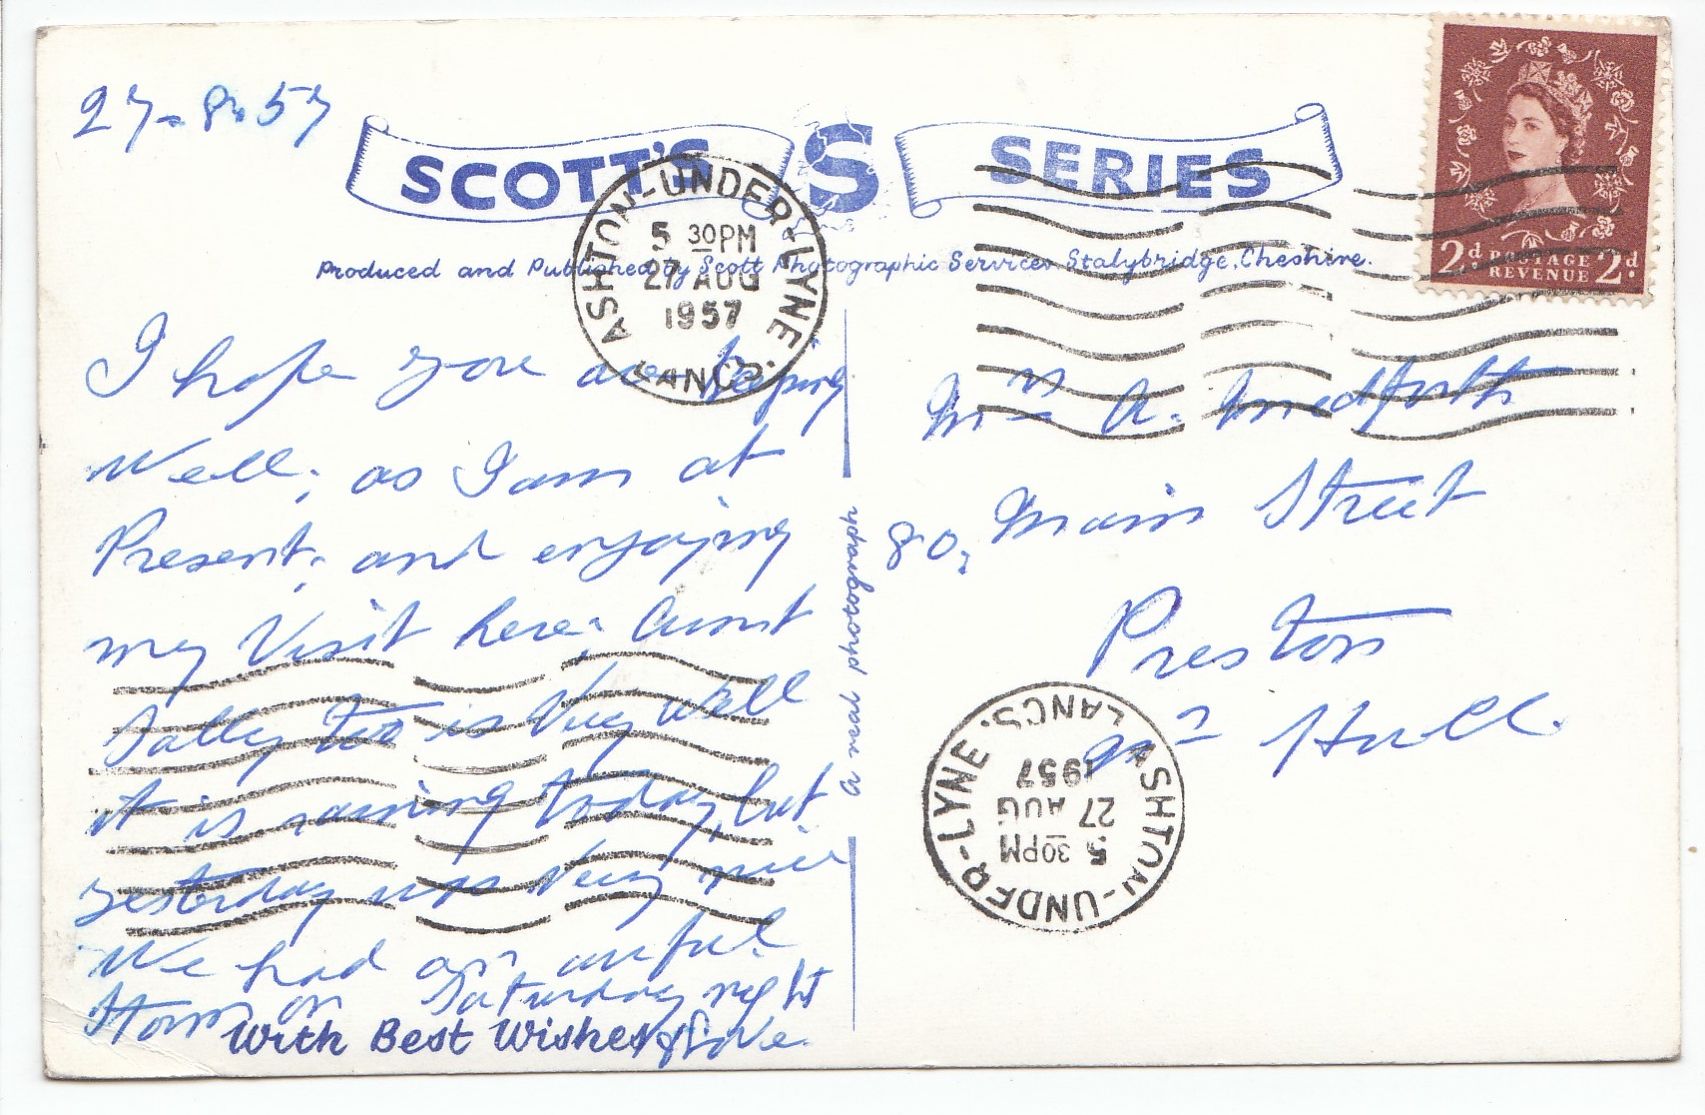 27-8-57
SCOTT'S S SERIES
Produced and Published by Scott Photographic Services Stalybridge, Cheshire.
ASHTON-UNDER-LYNE
5 30PM
27 AUG
1957
LANCS.
2d POSTAGE REVENUE 2d
I hope you are keeping
Well, as I am at
Present, and enjoying
my Visit here, Aunt
Sally too is Very well
it is raining today, but
yesterday was Very nice
We had an awful
Storm on Saturday night
With Best Wishes & Love.
a real photograph
Mrs A. Medforth
80, Main Street
Preston
Nr Hull.
ASHTON-UNDER-LYNE
5 30PM
27 AUG
1957
LANCS.